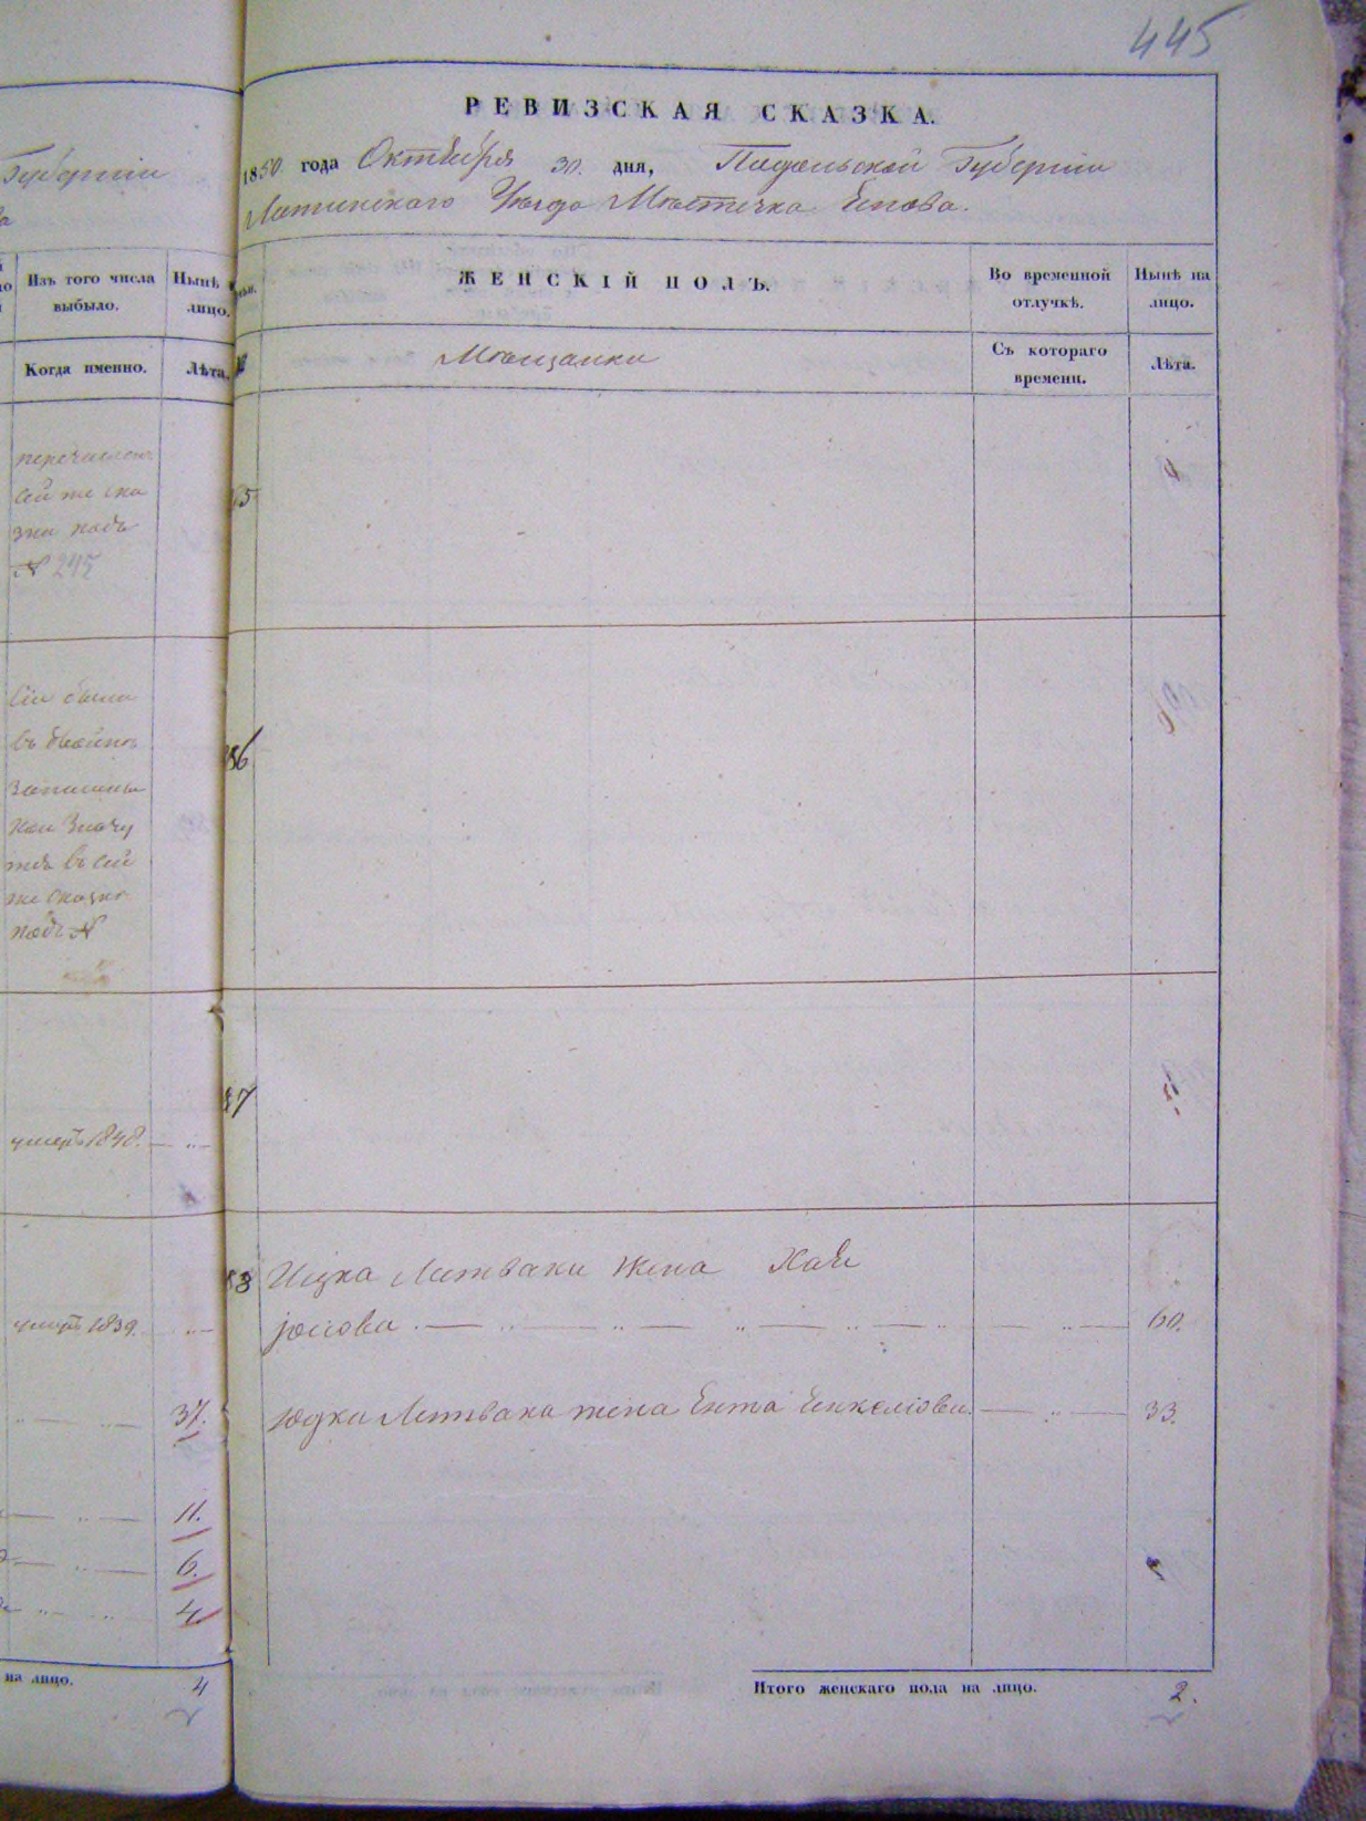 445
РЕВИЗСКАЯ СКАЗКА.
Губерніи
1850 года Октября 30. дня, Подольской Губерніи
Уезда Мѣстечка
Изъ того числа выбыло.
Нынѣ на лицо.
Когда именно.
Лѣта.
ЖЕНСКІЙ ПОЛЪ.
Во временной отлучкѣ.
Нынѣ на лицо.
Мѣщанки
Съ котораго времени.
Лѣта.
перечислен
сей же ска
зки подъ
№ 245
сіи были
въ
записаны
кои значу
тся въ сей
же сказке
подъ №
умеръ 1848.
умеръ 1839.
37.
11.
6.
4
на лицо. 4
85
86
87
88 Ицка Литвака жена Хая
Іосіова 60.
Юдки Литвака жена Ента Енкеліова. 33.
Итого женскаго пола на лицо. 2.